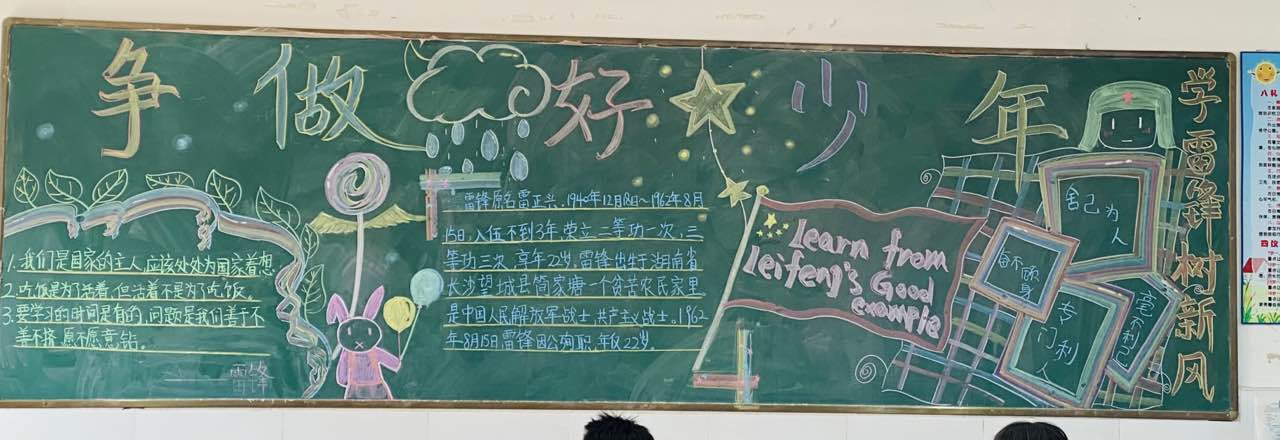 争做好少年
学雷锋树新风
1.我们是国家的主人,应该处处为国家着想.
2.吃饭是为了活着,但活着不是为了吃饭。
3.要学习的时间是有的,问题是我们善于不
善于挤,愿不愿意钻。
——雷锋
雷锋原名雷正兴,1940年12月18日~1962年8月
15日,入伍不到3年,荣立二等功一次,三
等功三次,享年22岁,雷锋出生于湖南省
长沙望城县简家塘一个贫苦农民家里
是中国人民解放军战士,共产主义战士。1962
年8月15日雷锋因公殉职,年仅22岁.
learn from
leifeng's Good
example
舍己为
人
奋不顾
身
专门利
人
毫不利己
八礼
四仪